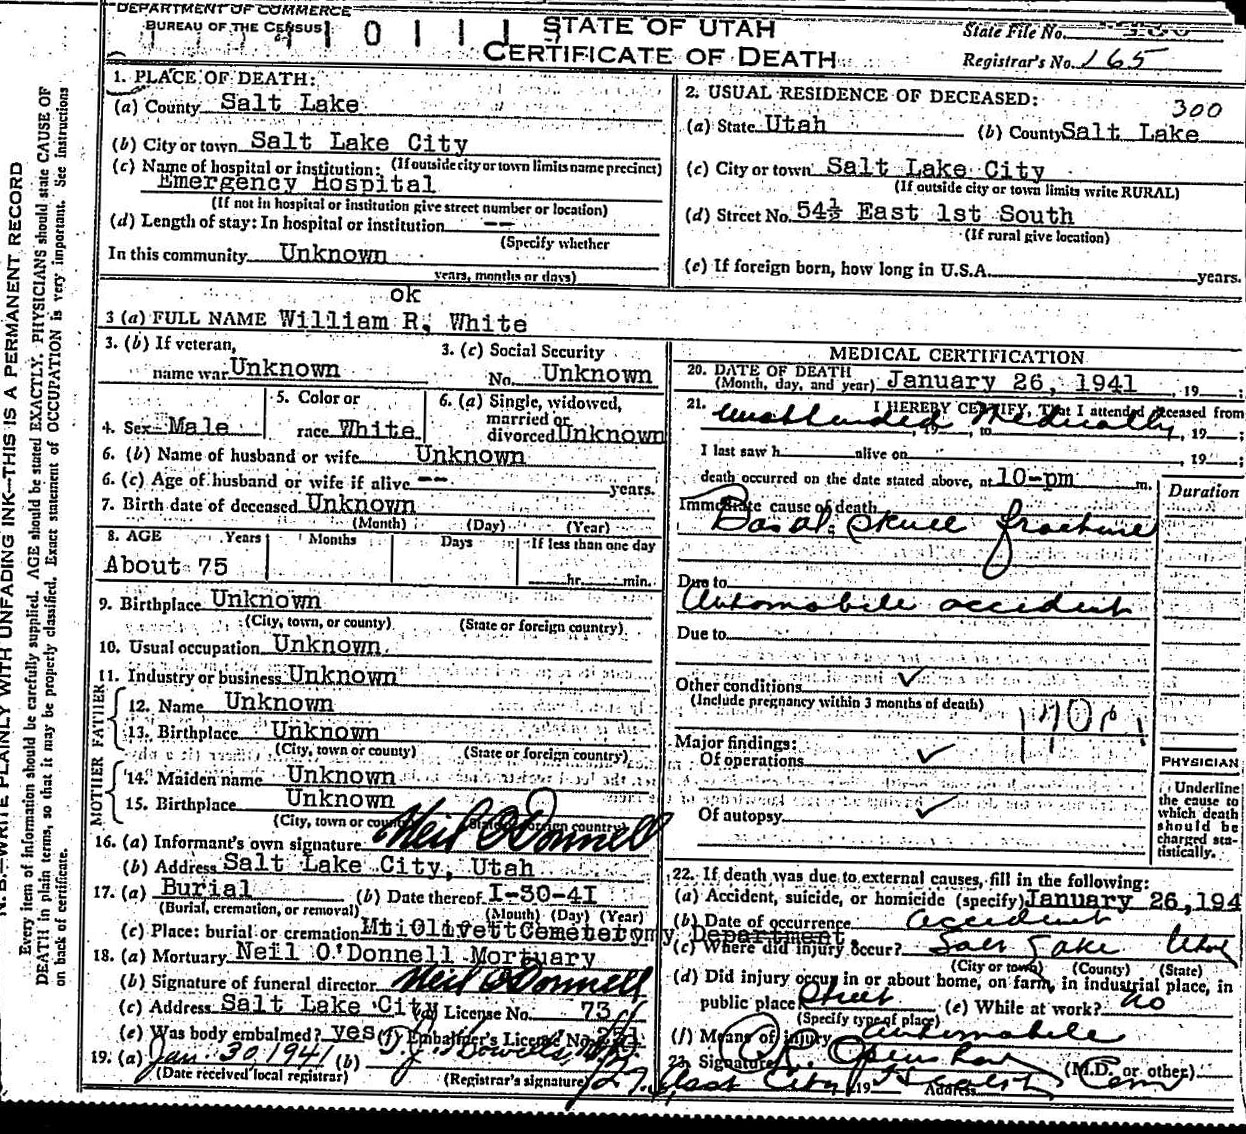 DEPARTMENT OF COMMERCE
BUREAU OF THE CENSUS
STATE OF UTAH
CERTIFICATE OF DEATH
State File No.
Registrar's No. 165
1. PLACE OF DEATH:
(a) County Salt Lake
(b) City or town Salt Lake City
(If outside city or town limits name precinct)
(c) Name of hospital or institution:
Emergency Hospital
(If not in hospital or institution give street number or location)
(d) Length of stay: In hospital or institution --
(Specify whether
In this community Unknown
years, months or days)
2. USUAL RESIDENCE OF DECEASED:
300
(a) State Utah (b) County Salt Lake
(c) City or town Salt Lake City
(If outside city or town limits write RURAL)
(d) Street No. 54½ East 1st South
(If rural give location)
(e) If foreign born, how long in U.S.A. years.
ok
3 (a) FULL NAME William R. White
3. (b) If veteran,
name war Unknown
3. (c) Social Security
No. Unknown
4. Sex Male
5. Color or
race White
6. (a) Single, widowed,
married or
divorced Unknown
6. (b) Name of husband or wife Unknown
6. (c) Age of husband or wife if alive -- years.
7. Birth date of deceased Unknown
(Month) (Day) (Year)
8. AGE Years Months Days If less than one day
About 75 hr. min.
9. Birthplace Unknown
(City, town, or county) (State or foreign country)
10. Usual occupation Unknown
11. Industry or business Unknown
FATHER
12. Name Unknown
13. Birthplace Unknown
(City, town or county) (State or foreign country)
MOTHER
14. Maiden name Unknown
15. Birthplace Unknown
(City, town or county) (State or foreign country)
16. (a) Informant's own signature Neil O'Donnell
(b) Address Salt Lake City, Utah
17. (a) Burial (b) Date thereof 1-30-41
(Burial, cremation, or removal) (Month) (Day) (Year)
(c) Place: burial or cremation Mt. Olivett Cemetery
18. (a) Mortuary Neil O'Donnell Mortuary
(b) Signature of funeral director Neil O'Donnell
(c) Address Salt Lake City (d) License No. 73
(e) Was body embalmed? yes (f) Embalmer's License No. 231
19. (a) Jan. 30 1941 (b)
(Date received local registrar) (Registrar's signature)
MEDICAL CERTIFICATION
20. DATE OF DEATH
(Month, day, and year) January 26, 1941, 19
21. I HEREBY CERTIFY, That I attended deceased from
Unattended Medically, 19 , to , 19 ;
I last saw h alive on , 19 ;
death occurred on the date stated above, at 10-pm m.
Duration
Immediate cause of death
Basal skull fracture
Due to
Automobile accident
Due to
Other conditions ✓
(Include pregnancy within 3 months of death)
Major findings:
Of operations ✓
Of autopsy ✓
PHYSICIAN
Underline
the cause to
which death
should be
charged sta-
tistically.
22. If death was due to external causes, fill in the following:
(a) Accident, suicide, or homicide (specify) January 26, 194
(b) Date of occurrence accident
(c) Where did injury occur? Salt Lake Utah
(City or town) (County) (State)
(d) Did injury occur in or about home, on farm, in industrial place, in
public place? Street (e) While at work? no
(Specify type of place)
(f) Means of injury automobile
23. Signature
(M.D. or other)
Address
N. B.—WRITE PLAINLY WITH UNFADING INK—THIS IS A PERMANENT RECORD
Every item of information should be carefully supplied. AGE should be stated EXACTLY. PHYSICIANS should state CAUSE OF
DEATH in plain terms, so that it may be properly classified. Exact statement of OCCUPATION is very important. See instructions
on back of certificate.